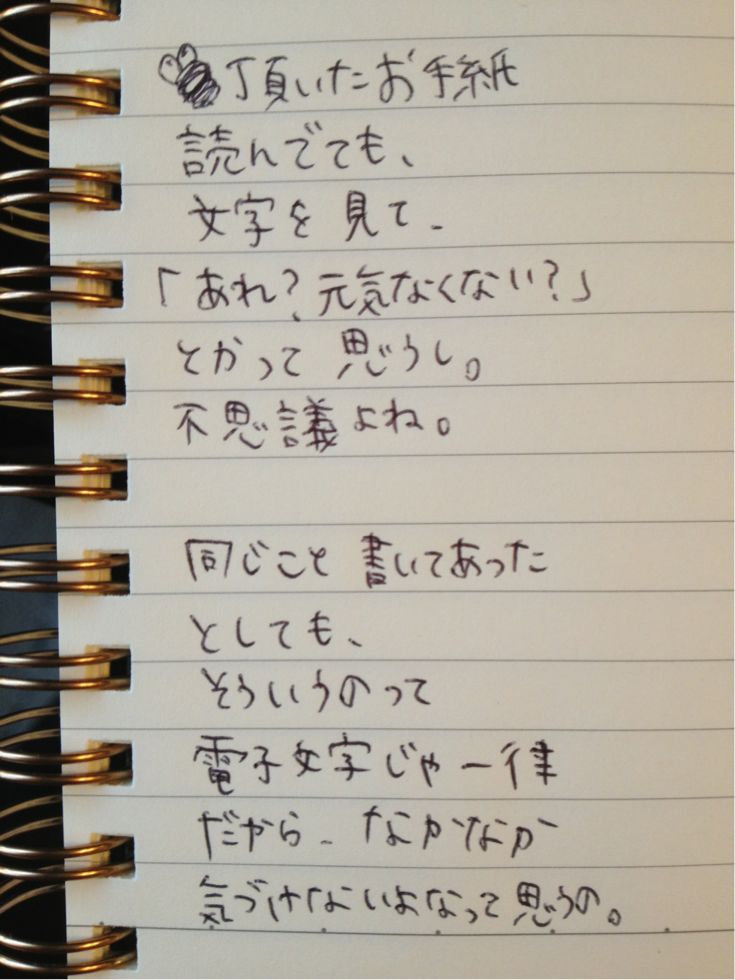 頂いたお手紙
読んでても、
文字を見て、
「あれ?元気なくない?」
とかって思うし。
不思議よね。
同じこと書いてあった
としても、
そういうのって
電子文字じゃ一律
だから、なかなか
気づけないよなって思うの。